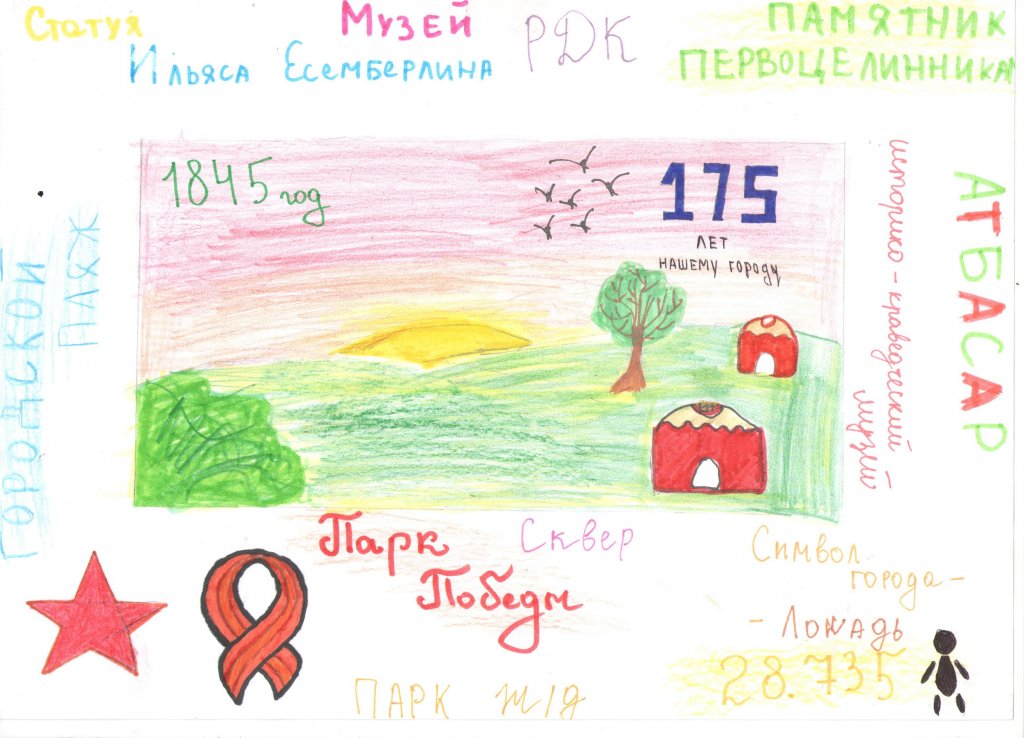 Статуя
Ильяса Есемберлина
Музей
РДК
ПАМЯТНИК
ПЕРВОЦЕЛИННИКА
1845 год
175
ЛЕТ
НАШЕМУ ГОРОДУ
ГОРОДСКОЙ
ПЛЯЖ
историко - краведческий
музей
АТБАСАР
Парк
Победы
Сквер
Символ
города -
- Лошадь
28.735
ПАРК Ж/Д